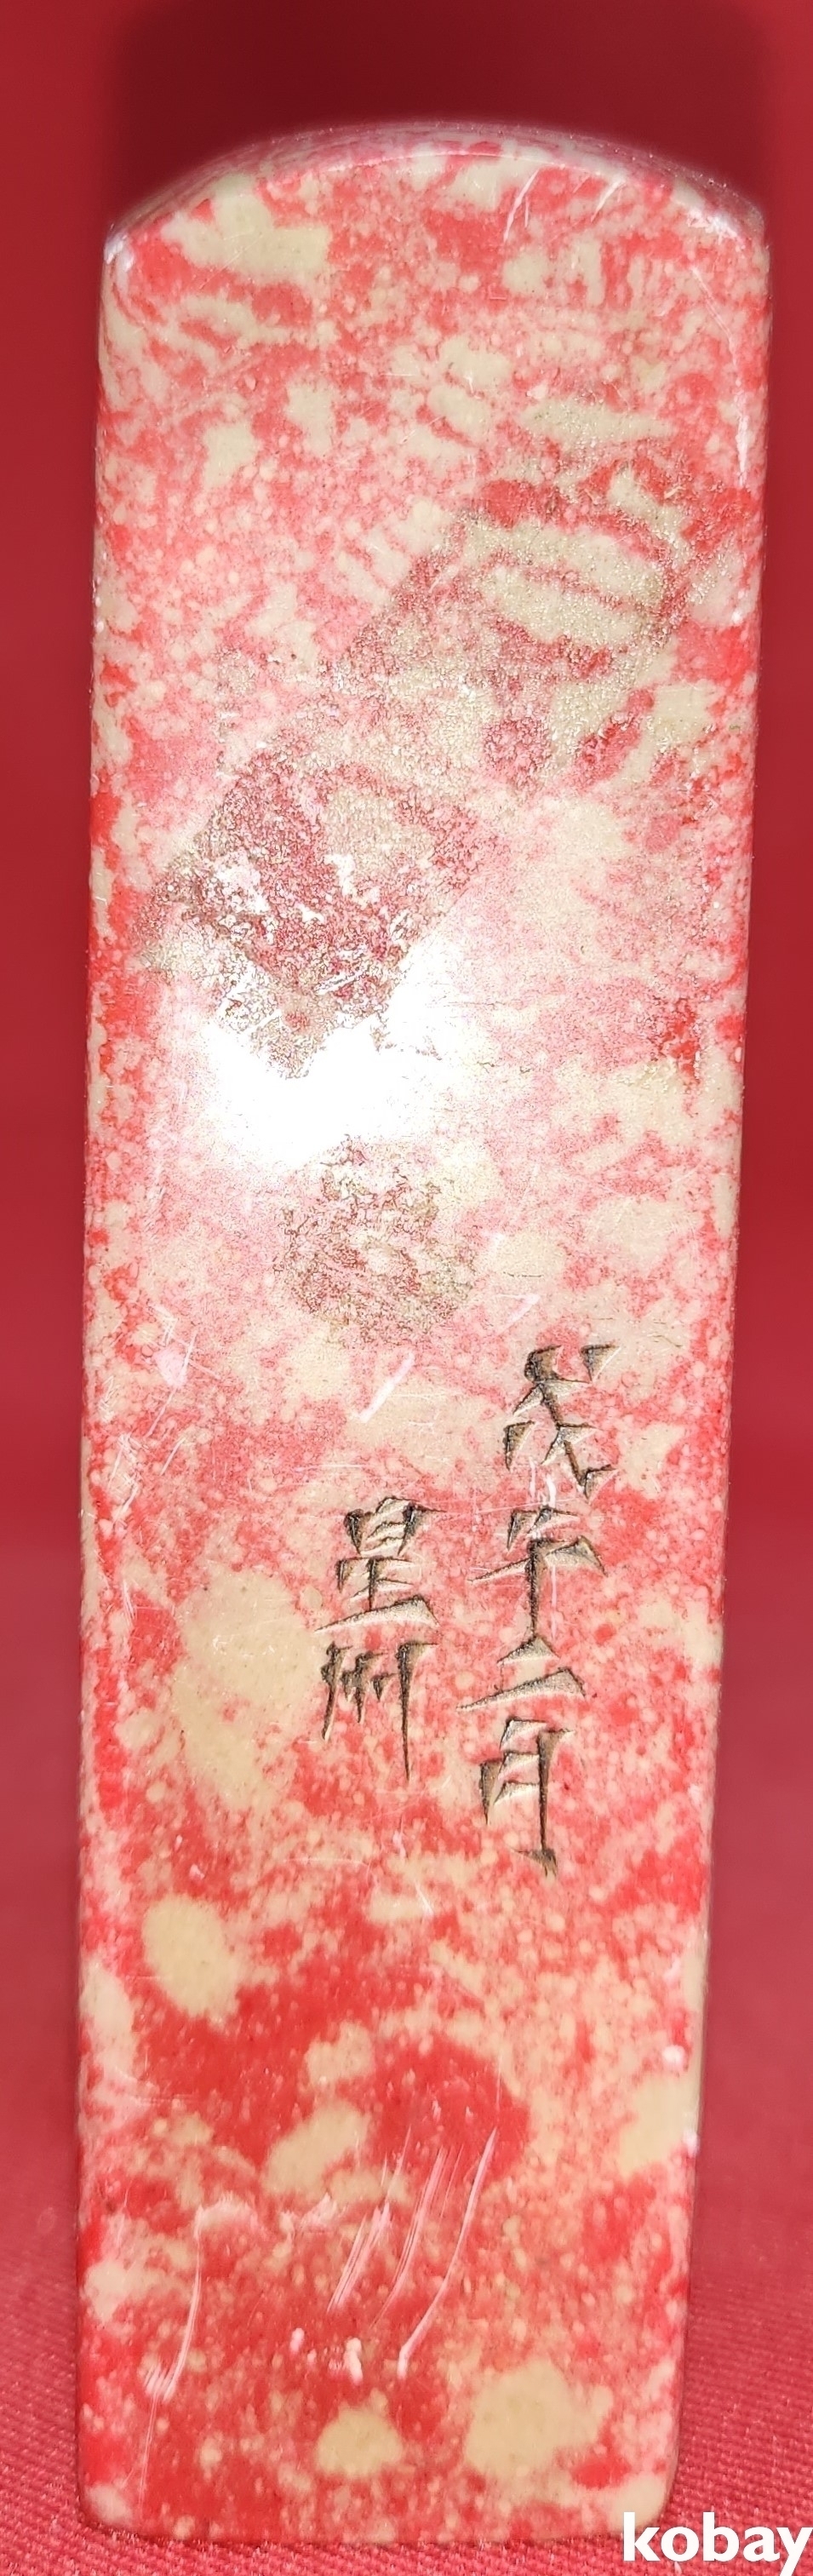 癸午二月
星州
kobay